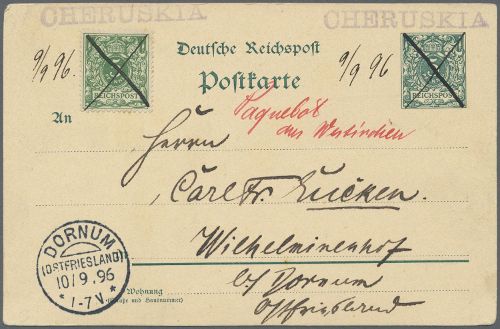 CHERUSKIA CHERUSKIA
Deutsche Reichspost
9/9 96. 9/9 96
REICHSPOST REICHSPOST
Postkarte
Paquebot
aus Westindien
An
Herrn
Carl Fr. Eucken.
Wilhelminenhof
b/ Dornum
Ostfriesland
DORNUM
(OSTFRIESLAND)
10/9.96
* 1-7 V. *
Wohnung
(Straße und Hausnummer)